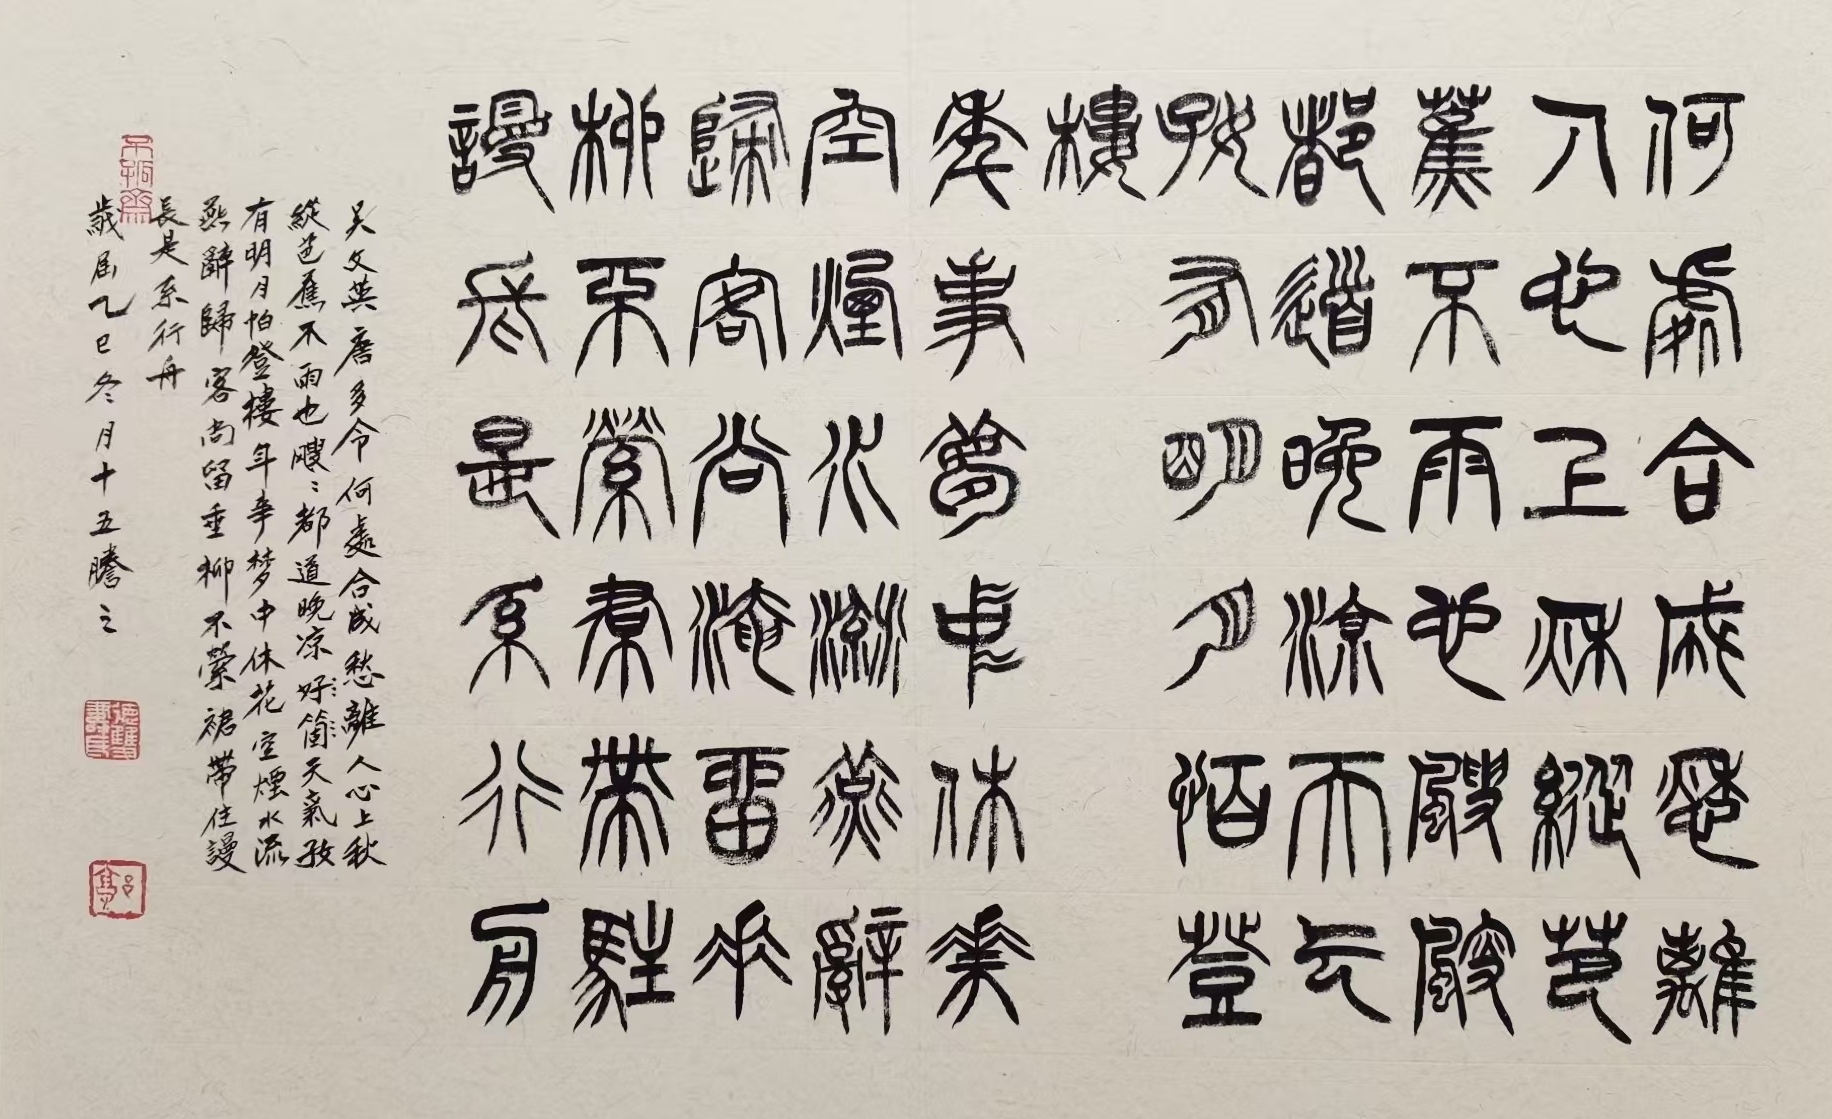 何處合成愁離
人心上秋縱芭
蕉不雨也颼颼
都道晚涼天气
好有明月怕登
樓
年事夢中休花
空煙水流燕辭
歸客尚淹留垂
柳不縈裙帶駐
謾長是系行舟
吴文英唐多令何處合成愁離人心上秋
縱芭蕉不雨也颼〻都道晚凉好箇天氣好
有明月怕登樓年事梦中休花空煙水流
燕辭歸客尚留垂柳不縈裙帶住謾
長是系行舟
歲届乙巳冬月十五騰之